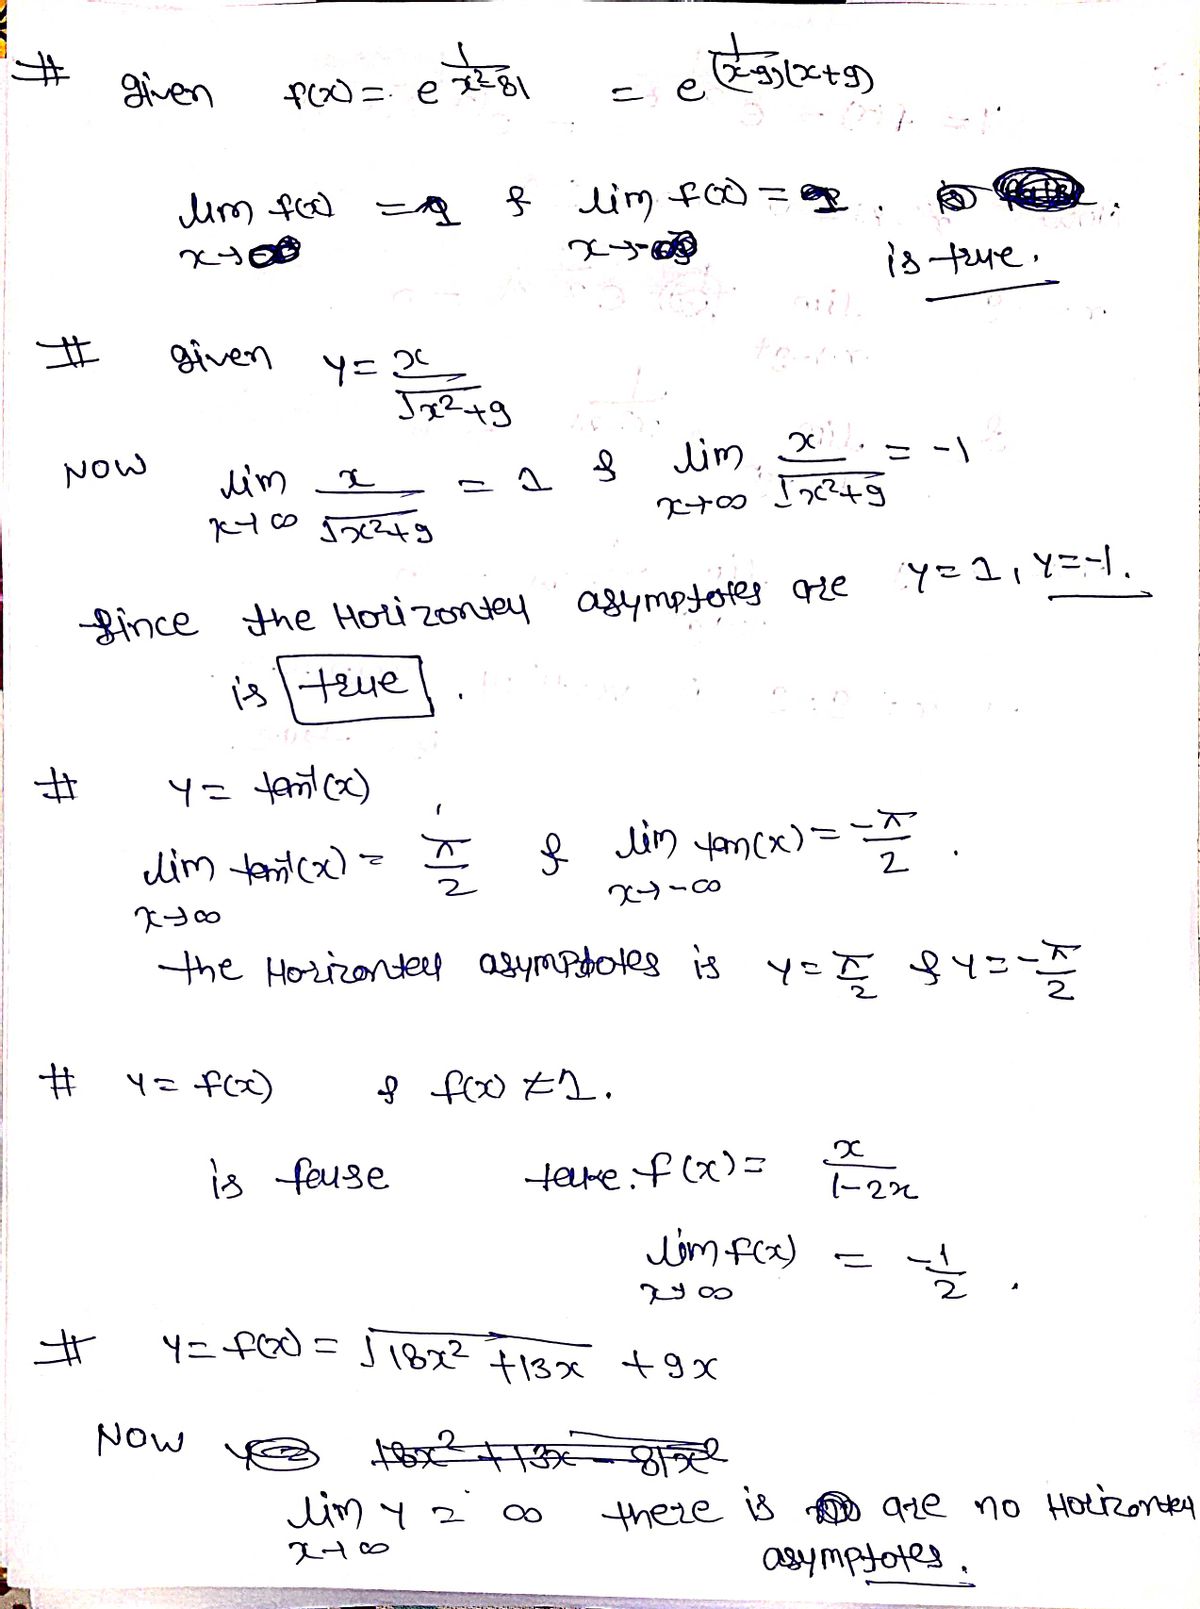 # given f(x) = e^(1/(x²-81)) = e^(1/((x-9)(x+9)))
lim f(x) = & lim f(x) = .
x→∞ x→-∞ is true.
# given y = x/√(x²+9)
NOW lim x/√(x²+9) = 1 & lim x/√(x²+9) = -1
x→∞ x→∞
Since the Horizontal asymptotes are y=1, y=-1.
is true.
# y = tan⁻¹(x)
lim tan⁻¹(x) = π/2 & lim tan(x) = -π/2.
x→∞ x→-∞
the Horizontal asymptotes is y = π/2 & y = -π/2
# y = f(x) & f(x) ≠ 1.
is false take. f(x) = x/(1-2x)
lim f(x) = -1/2.
x→∞
# y = f(x) = √(18x² + 13x) + 9x
NOW 18x² + 13x - 81x²
lim y = ∞ there is are no Horizontal
x→∞ asymptotes.